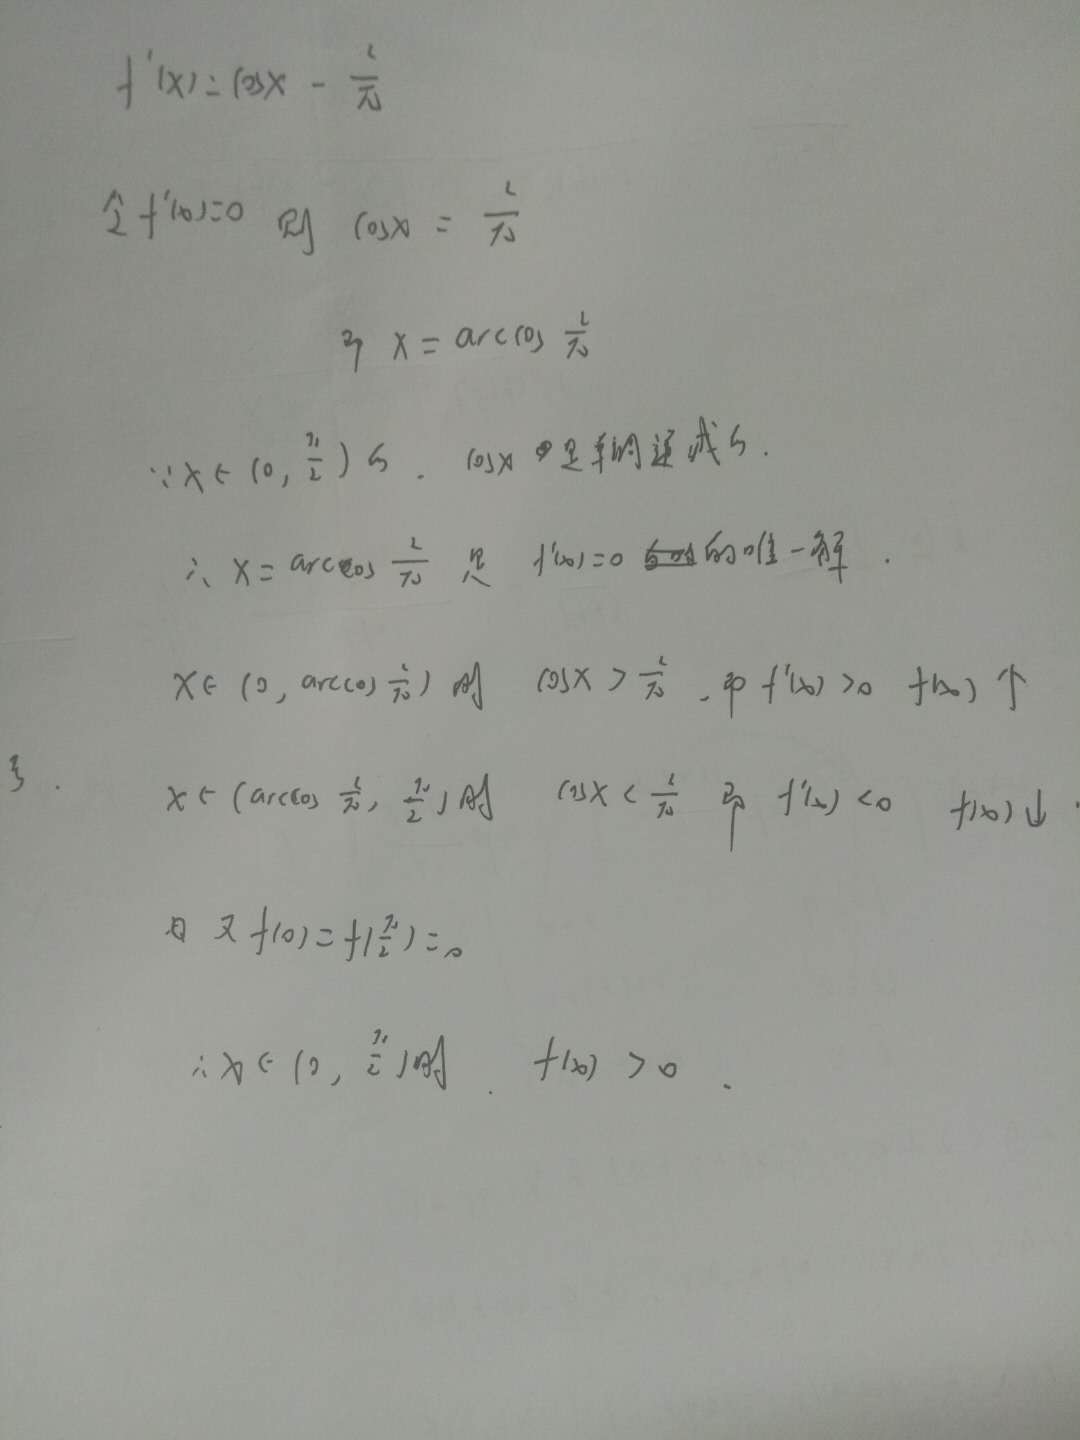 f'(x)=cosx - 2/π
令f'(x)=0 则 cosx = 2/π
即 x = arccos 2/π
∵x∈(0, π/2)与. cosx 是单调递减与.
∴ x = arccos 2/π 是 f'(x)=0 的唯一解.
x∈(0, arccos 2/π) 时 cosx > 2/π . 即 f'(x) >0 f(x)↑
x∈(arccos 2/π, π/2)时 cosx < 2/π 即 f'(x) <0 f(x)↓.
又 f(0)=f(π/2)=0
∴x∈(0, π/2)时. f(x) >0 .